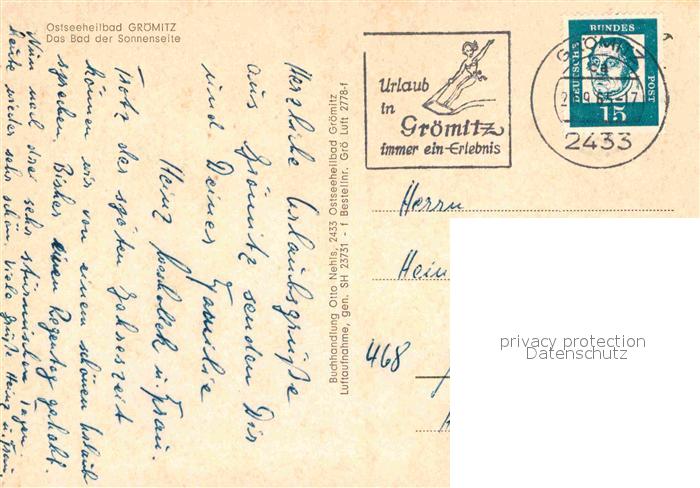 Ostseeheilbad GRÖMITZ
Das Bad der Sonnenseite
Herzliche Urlaubsgrüße
aus Grömitz senden Dir
und Deiner Familie
Heinz u. Frau.
Trotz der späten Jahreszeit
können wir von einem schönen Urlaub
sprechen. Bisher einen Regentag gehabt.
Nun nach drei sehr stürmischen Tagen
heute wieder sehr schön. Viele Grüße Heinz u. Frau.
Buchhandlung Otto Nehls, 2433 Ostseeheilbad Grömitz
Luftaufnahme, gen. SH 23731 - f Bestellnr. Grö Luft 2778-f
Urlaub
in
Grömitz
immer ein Erlebnis
GRÖMITZ
2433
DEUTSCHE
BUNDES
POST
15
Herrn
Hein
468
privacy protection
Datenschutz